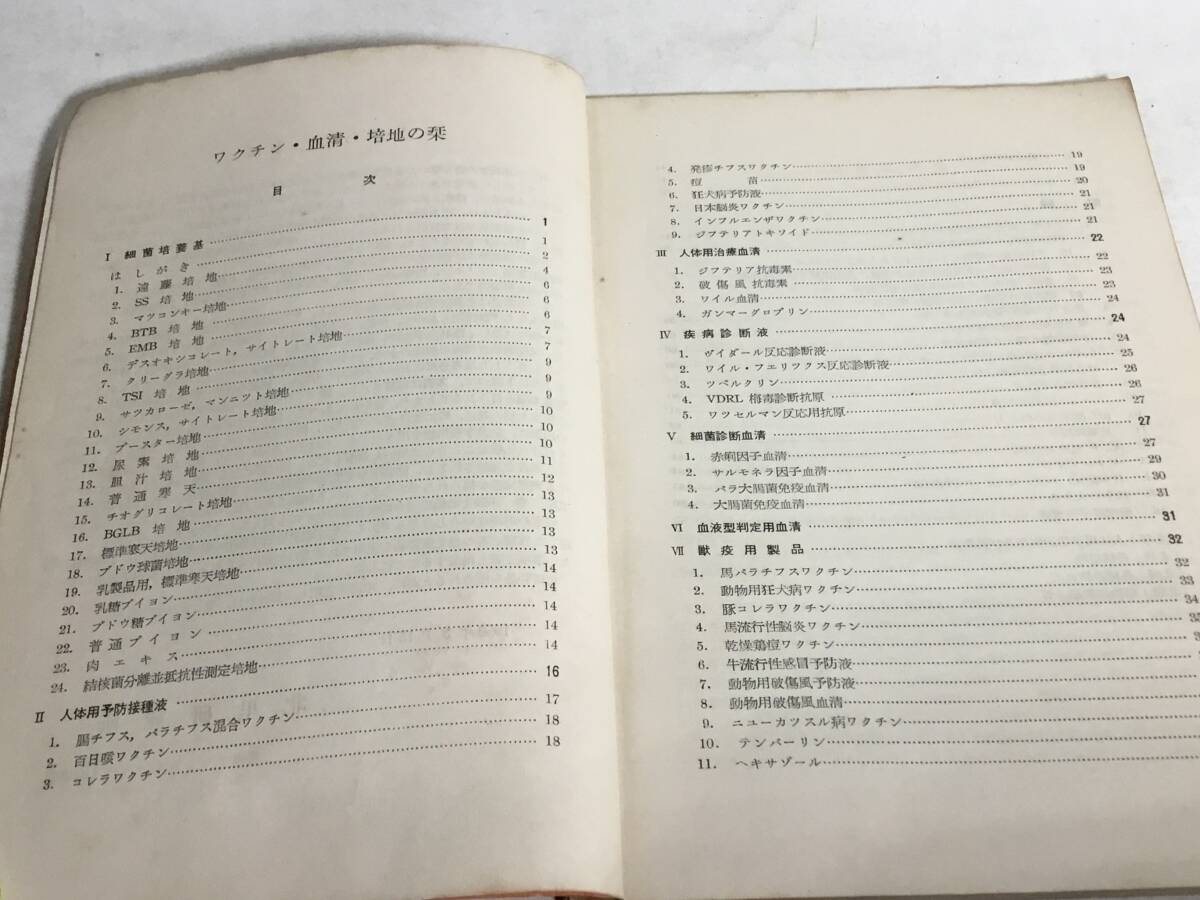 ワクチン・血清・培地の栞
目 次
Ⅰ 細菌培養基 1
はしがき 1
1. 遠藤培地 2
2. SS 培地 4
3. マツコンキー培地 6
4. BTB 培地 6
5. EMB 培地 6
6. デスオキシコレート, サイトレート培地 7
7. クリーグラ培地 7
8. TSI 培地 9
9. サツカローゼ, マンニツト培地 9
10. シモンス, サイトレート培地 9
11. ブースター培地 10
12. 尿素培地 10
13. 胆汁培地 10
14. 普通寒天 11
15. チオグリコレート培地 12
16. BGLB 培地 13
17. 標準寒天培地 13
18. ブドウ球菌培地 13
19. 乳製品用, 標準寒天培地 13
20. 乳糖ブイヨン 14
21. ブドウ糖ブイヨン 14
22. 普通ブイヨン 14
23. 肉エキス 14
24. 結核菌分離並抵抗性測定培地 14
Ⅱ 人体用予防接種液 16
1. 腸チフス, パラチフス混合ワクチン 17
2. 百日咳ワクチン 18
3. コレラワクチン 18
4. 発疹チフスワクチン 19
5. 痘苗 19
6. 狂犬病予防液 20
7. 日本脳炎ワクチン 21
8. インフルエンザワクチン 21
9. ジフテリアトキソイド 21
Ⅲ 人体用治療血清 22
1. ジフテリア抗毒素 22
2. 破傷風抗毒素 23
3. ワイル血清 23
4. ガンマーグロブリン 24
Ⅳ 疾病診断液 24
1. ヴイダール反応診断液 24
2. ワイル・フエリツクス反応診断液 25
3. ツベルクリン 26
4. VDRL 梅毒診断抗原 26
5. ワツセルマン反応用抗原 27
Ⅴ 細菌診断血清 27
1. 赤痢因子血清 27
2. サルモネラ因子血清 29
3. パラ大腸菌免疫血清 30
4. 大腸菌免疫血清 31
Ⅵ 血液型判定用血清 31
Ⅶ 獣疫用製品 32
1. 馬パラチフスワクチン 32
2. 動物用狂犬病ワクチン 33
3. 豚コレラワクチン 34
4. 馬流行性脳炎ワクチン
5. 乾燥鶏痘ワクチン
6. 牛流行性感冒予防液
7. 動物用破傷風予防液
8. 動物用破傷風血清
9. ニューカツスル病ワクチン
10. テンパーリン
11. ヘキサゾール